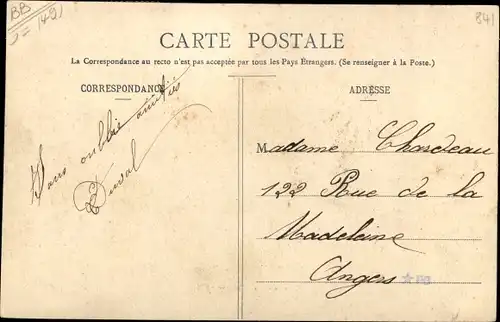 BB
(49)
841
CARTE POSTALE
La Correspondance au recto n'est pas acceptée par tous les Pays Étrangers. (Se renseigner à la Poste.)
CORRESPONDANCE
Sans oublier amitiés
Duval
ADRESSE
Madame Chardeau
122 Rue de la
Madeleine
Angers